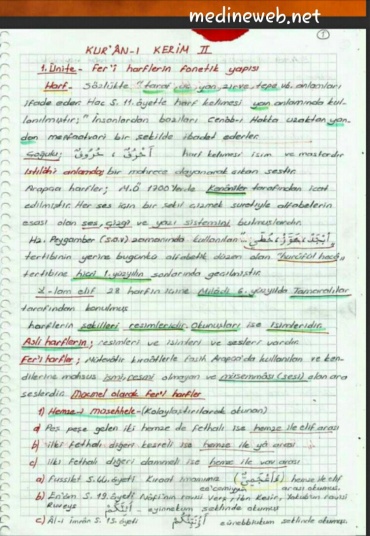 medineweb.net
1
KUR'ÂN-I KERİM II
1. Ünite - Fer'î harflerin fonetik yapısı
Harf - Sözlükte "taraf, uç, yan, zirve, tepe vb. anlamları
ifade eder. Hac S. 11. âyette harf kelimesi yan anlamında kul-
lanılmıştır; "İnsanlardan bazıları Cenâb-ı Hakka uzaktan yan-
dan menfaatvari bir şekilde ibadet ederler.
Çoğulu; أَحْرُفٌ ، حُرُوفٌ harf kelimesi isim ve masdardır
Istılâhi anlamda; bir mahrece dayanarak çıkan sestir.
Arapça harfler; M.Ö 1700'lerde Kenânîler tarafından icat
edilmiştir. Her ses için bir şekil çizmek suretiyle alfabelerin
esası olan ses, çizgi ve yazı sistemini bulmuşlardır.
Hz. Peygamber (s.a.v) zamanında kullanılan - أَبْجَدْ، هَوَّزْ، حُطِّي
tertibinin yerine bugünkü alfabetik düzen olan "hurûfu'l hecâ"
tertibine hicri 1. yüzyılın sonlarında geçilmiştir.
لا - lam elif 28 harfin içine Milâdi 6. yüzyılda
tarafından konulmuş
harflerin şekilleri resimleridir. Okunuşları ise isimleridir.
Asli harflerin; resimleri ve isimleri ve sesleri vardır.
Fer'i harfler; Mütevâtir kırâetlerle fasih Arapça'da kullanılan ve ken-
dilerine mahsus ismi, resmi olmayan ve müsemması (sesi) olan ara
seslerdir. Mücmel olarak fer'î harfler
1) Hemze-i müsehhele - (Kolaylaştırılarak okunan)
a) Peş peşe gelen iki hemze de fethalı ise hemze ile elif arası
b) ilki fethalı diğeri kesreli ise hemze ile yâ arası
c) ilki fethalı diğeri dammeli ise hemze ile vav arası
a) Fussilet S. 44. âyeti Kıraat imamımız hemze ile elif
arası okumuş
b) En'âm S. 19. âyeti Nâfi'nin ravisi Verş, İbn Kesir, Yakub'un ravisi
Ruveys أَئِنَّكُمْ - eyinnekum şeklinde okumuş
c) Âl-i İmrân S. 15. âyeti أَؤُنَبِّئُكُمْ şeklinde okumuş.